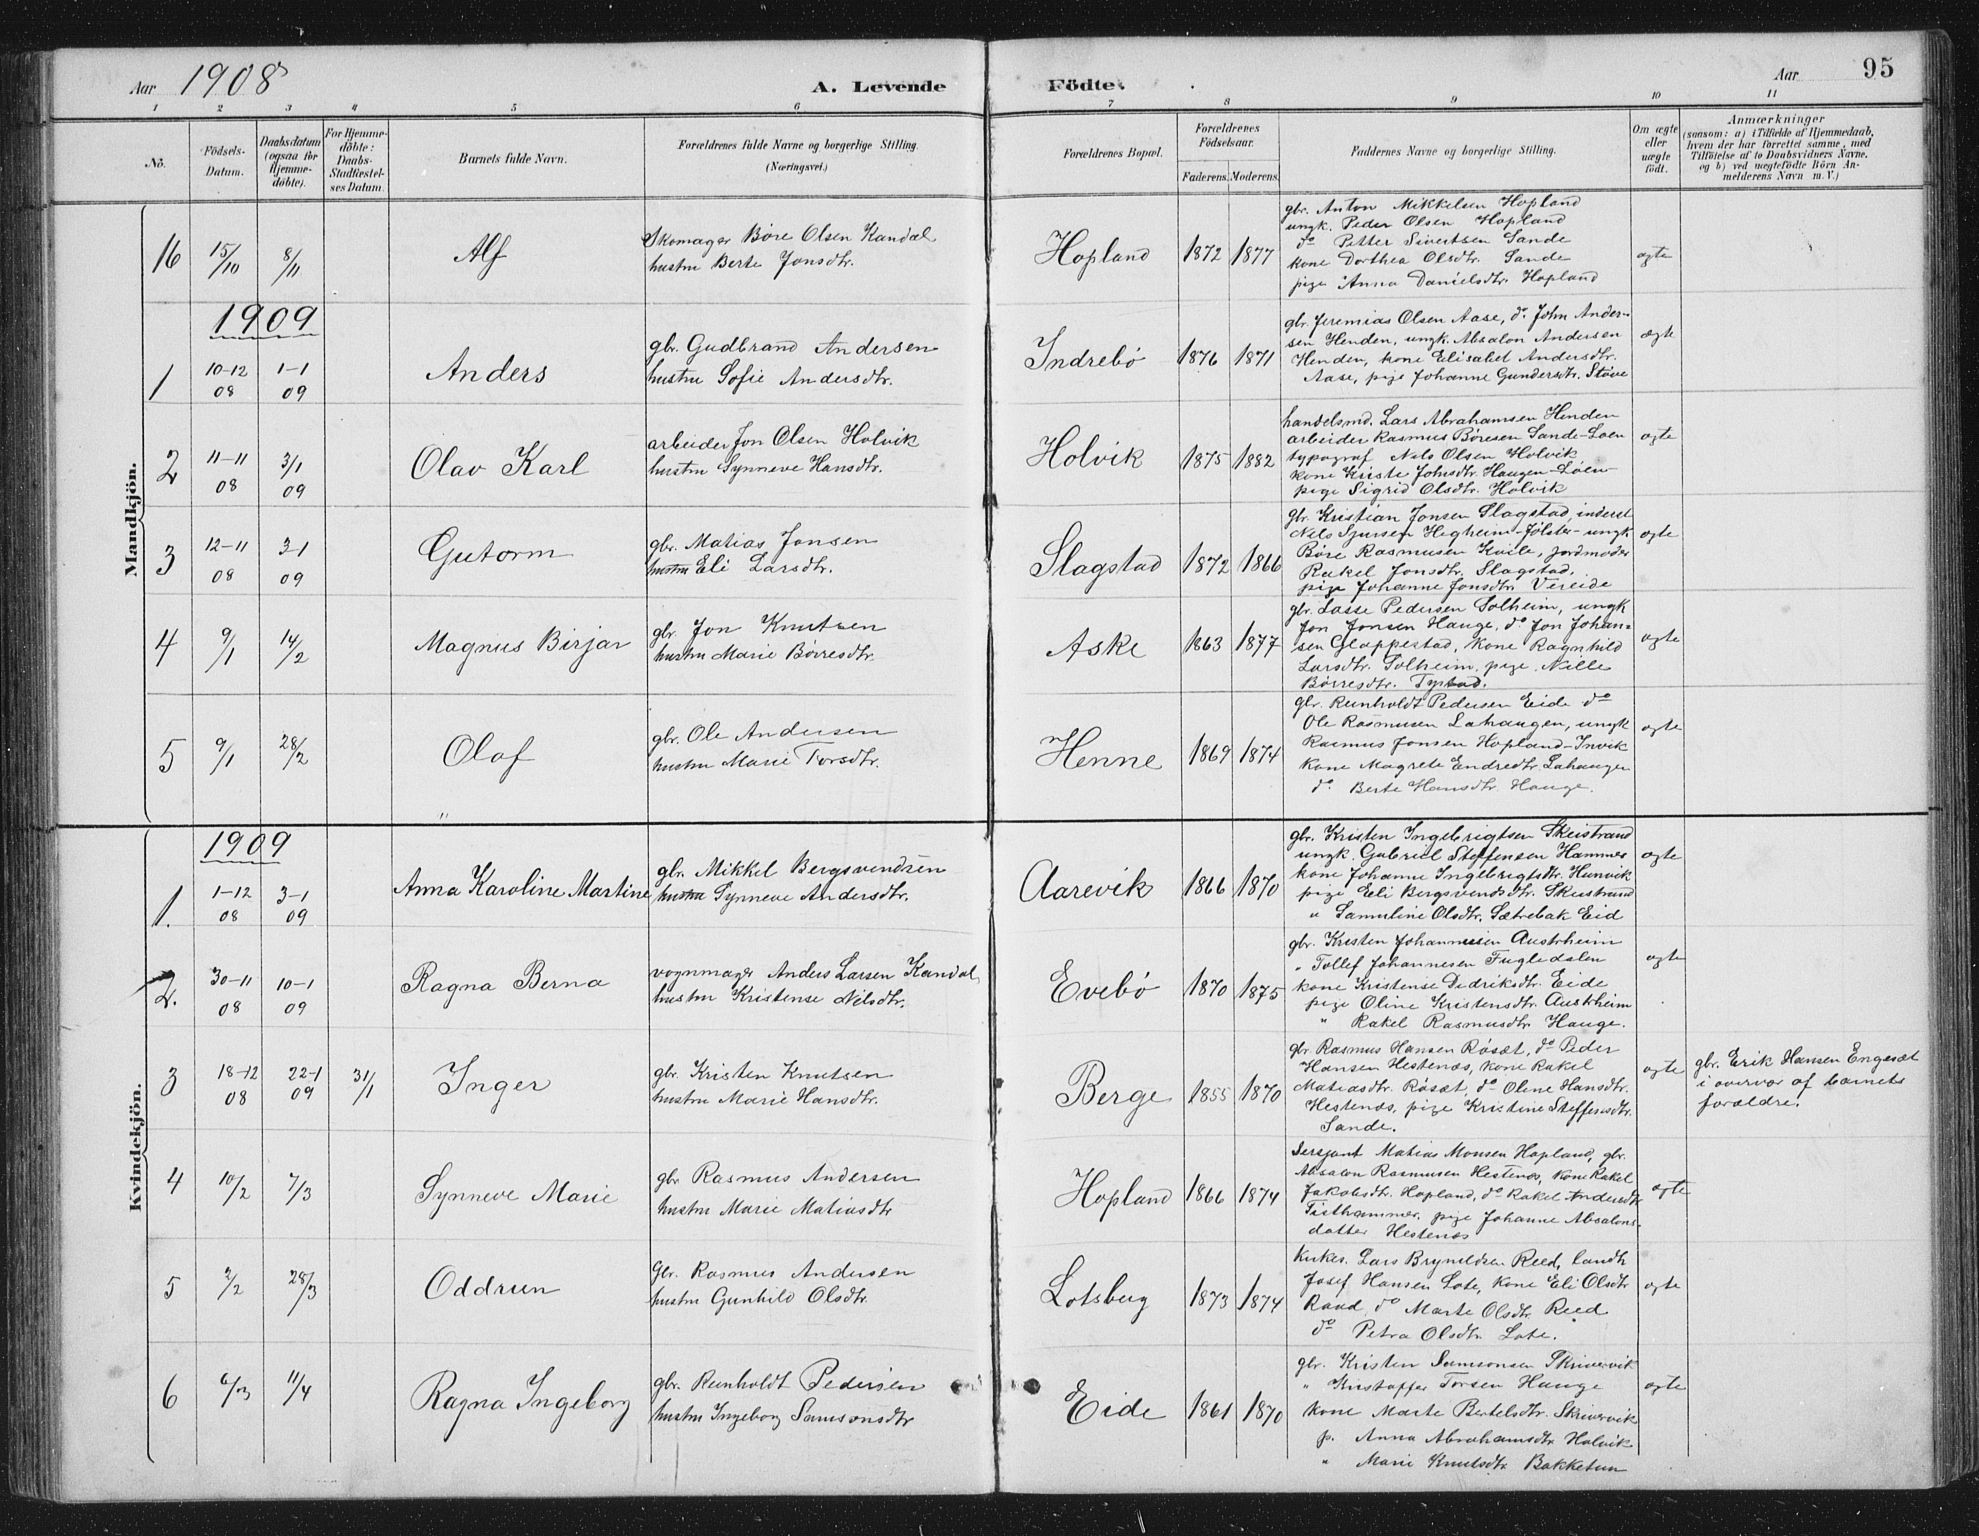 Aar 1908 A. Levende Födte. Aar 95
1 2 3 4 5 6 7 8 9 10 11
No. Födsels-Datum. Daabsdatum (ogsaa for Hjemmedöbte). For Hjemmedöbte: Daabs-Stadfæstelses Datum. Barnets fulde Navn. Forældrenes fulde Navne og borgerlige Stilling. (Næringsvei.) Forældrenes Bopæl. Forældrenes Födselsaar. Faderens. Moderens. Faddernes Navne og borgerlige Stilling. Om ægte eller uægte födt. Anmærkninger (saasom: a) i Tilfælde af Hjemmedaab, hvem der har forrettet samme, med Tilföielse af to Daabsvidners Navne, og b) ved uægtefödte Börn Anmelderens Navn m. V.)
Mandkjön.
16 15/10 8/11 Alf
Skomager Böre Olsen Kandal
hustru Berte Jonsdtr.
Hopland 1872 1877
gbr. Anton Mikkelsen Hopland
ungk. Peder Olsen Hopland
do Petter Sivertsen Sande
kone Dorthea Olsdtr. Sande
pige Anna Danielsdtr. Hopland
ægte
1909
1 10-12 08 1-1 09 Anders
gbr. Gudbrand Andersen
hustru Sofie Andersdtr.
Indrebö 1876 1871
gbr. Jeremias Olsen Aase, do John Ander-
sen Henden, ungk. Absalon Andersen
Henden, kone Elisabet Andersdtr.
Aase, pige Johanne Gundersdtr. Støve
ægte
2 11-11 08 3/1 09 Olav Karl
arbeider Jon Olsen Holvik
hustru Synneve Hansdtr.
Holvik 1875 1882
handelsmd. Lars Abrahamsen Henden
arbeider Rasmus Böresen Sande-Loen
typograf Nils Olsen Holvik
kone Kriste Johsdtr. Haugen-Loen-
pige Sigrid Olsdtr. Holvik
ægte
3 12-11 08 3-1 09 Gutorm
gbr. Matias Jonsen
hustru Eli Larsdtr.
Slagstad 1872 1866
gbr. Kristian Jonsen Slagstad, inderst
Nils Sjursen Hegheim-Jølster- ungk
Böre Rasmusen Kvile, jordmoder
Rakel Jonsdtr. Slagstad,
pige Johanne Jonsdtr Vereide
ægte
4 9/1 14/2 Magnus Birjar
gbr. Jon Knutsen
hustru Marie Börresdtr.
Aske 1863 1877
gbr. Lasse Pedersen Solheim, ungk
Jon Jonsen Hauge, do Jon Johan-
sen Gloppestad, kone Ragnhild
Larsdtr. Solheim, pige Nille
Börresdtr. Tystad.
ægte
5 9/1 28/2 Olaf
gbr. Ole Andersen
hustru Marie Torsdtr.
Henne 1869 1874
gbr. Reinholdt Pedersen Eide do
Ole Rasmusen Lahaugen, ungk
Rasmus Jonsen Hopland-Invik
kone Magrete Endredtr. Lahaugen
do. Berte Hansdtr. Hauge.
ægte
Kvindekjön.
1909
1. 1-12 08 3-1 09 Anna Karoline Martine
gbr. Mikkel Bergsvendsen
hustru Synneve Andersdtr.
Aarevik 1866 1870
gbr. Kristen Ingebrigtsen Skeistrand
ungk. Gabriel Steffensen Hammer
kone Johanne Ingebrigtsdtr. Hunvik
pige Eli Bergsvendsdtr. Skeistrand
" Samuline Olsdtr. Sætrebak Eid
ægte
2. 30-11 08 10-1 09 Ragna Berna
vognmager Anders Larsen Kandal,
hustru Kristense Nilsdtr.
Evebö 1870 1875
gbr. Kristen Johannesen Austrheim
" Tollef Johannesen Fugledalen
kone Kristense Dedriksdtr. Eide
pige Oline Kristensdtr. Austrheim
" Rakel Rasmusdtr. Hauge.
ægte
3 18-12 08 22-1 09 31/1 Inger
gbr. Kristen Knutsen
hustru Marie Hansdtr.
Berge 1855 1870
gbr. Rasmus Hansen Røsæt, do Peder
Hansen Hestenæs, kone Rakel
Matiasdtr. Røsæt, do Oline Hansdtr.
Hestenæs, pige Kristine Steffensdtr.
Sande.
ægte
gbr. Erik Hansen Engesæt
i overvær af barnets
forældre.
4 10/2 7/3 Synneve Marie
gbr. Rasmus Andersen
hustru Marie Matiasdtr
Hopland 1866 1874
Sersjant Matias Monsen Hopland, gbr.
Absalon Rasmusen Hestenæs, kone Rakel
Jakobsdtr. Hopland, do Rakel Andersdtr
Fisthammer, pige Johanne Absalons-
datter Hestenæs
ægte
5 2/2 28/3 Oddrun
Gbr. Rasmus Andersen
hustru Gunhild Olsdtr.
Lotsberg 1873 1874
kirkes. Lars Brynildsen Reed, landh
Josef Hansen Lote, kone Eli Olsdtr
Raad, do Marte Olsdtr Reed
do Petra Olsdtr. Lote.
ægte
6 6/3 11/4 Ragna Ingeborg
gbr. Reinholdt Pedersen
hustru Ingeborg Samsonsdtr
Eide 1861 1870
gbr. Kristen Samsonsen Skrivervik
" Kristoffer Torsen Hauge
kone Marte Bertelsdtr. Skrivervik
p. Anna Abrahamsdtr Holvik
" Marie Knutsdtr Bakketun
ægte